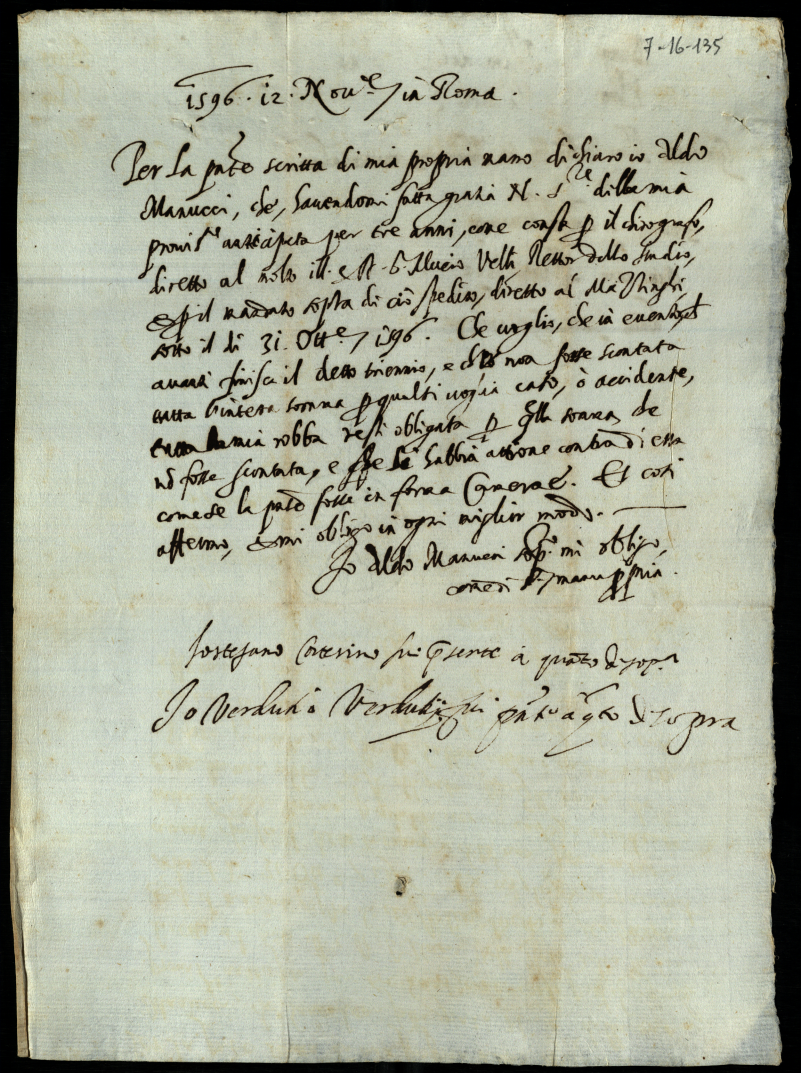 7-16-135
1596. 12. Nov.e / in Roma.
Per la pnte scritta di mia propria mano dichiaro io Aldo
Manucci, che, havendomi fatta gratia N. S.re della mia
provis.ne anticipata per tre anni, come consta p il chirografo,
diretto al molto ill. et R. Rettor dello studio,
et p il mandato sopra di ciò spedito, diretto al
sotto il dì 31. Ott.e / 1596. Che voglio, che in evento, ch
avanti finisca il detto triennio, e che non fosse scontata
tutta l'intera somma p qualsi voglia caso, ò accidente,
tutta la mia robba resti obligata p quella somma, che
nō fosse scontata, e che si habbia attione contra di essa
come se la pnte fosse in forma Camerae. Et così
affermo, et mi obligo in ogni miglior modo.
Io Aldo Manucci sop.a mi obligo,
come di s.a / manu ppria.
Io stefano fui psente à quāto di sop.a
Io fui pnte a qto di sopra